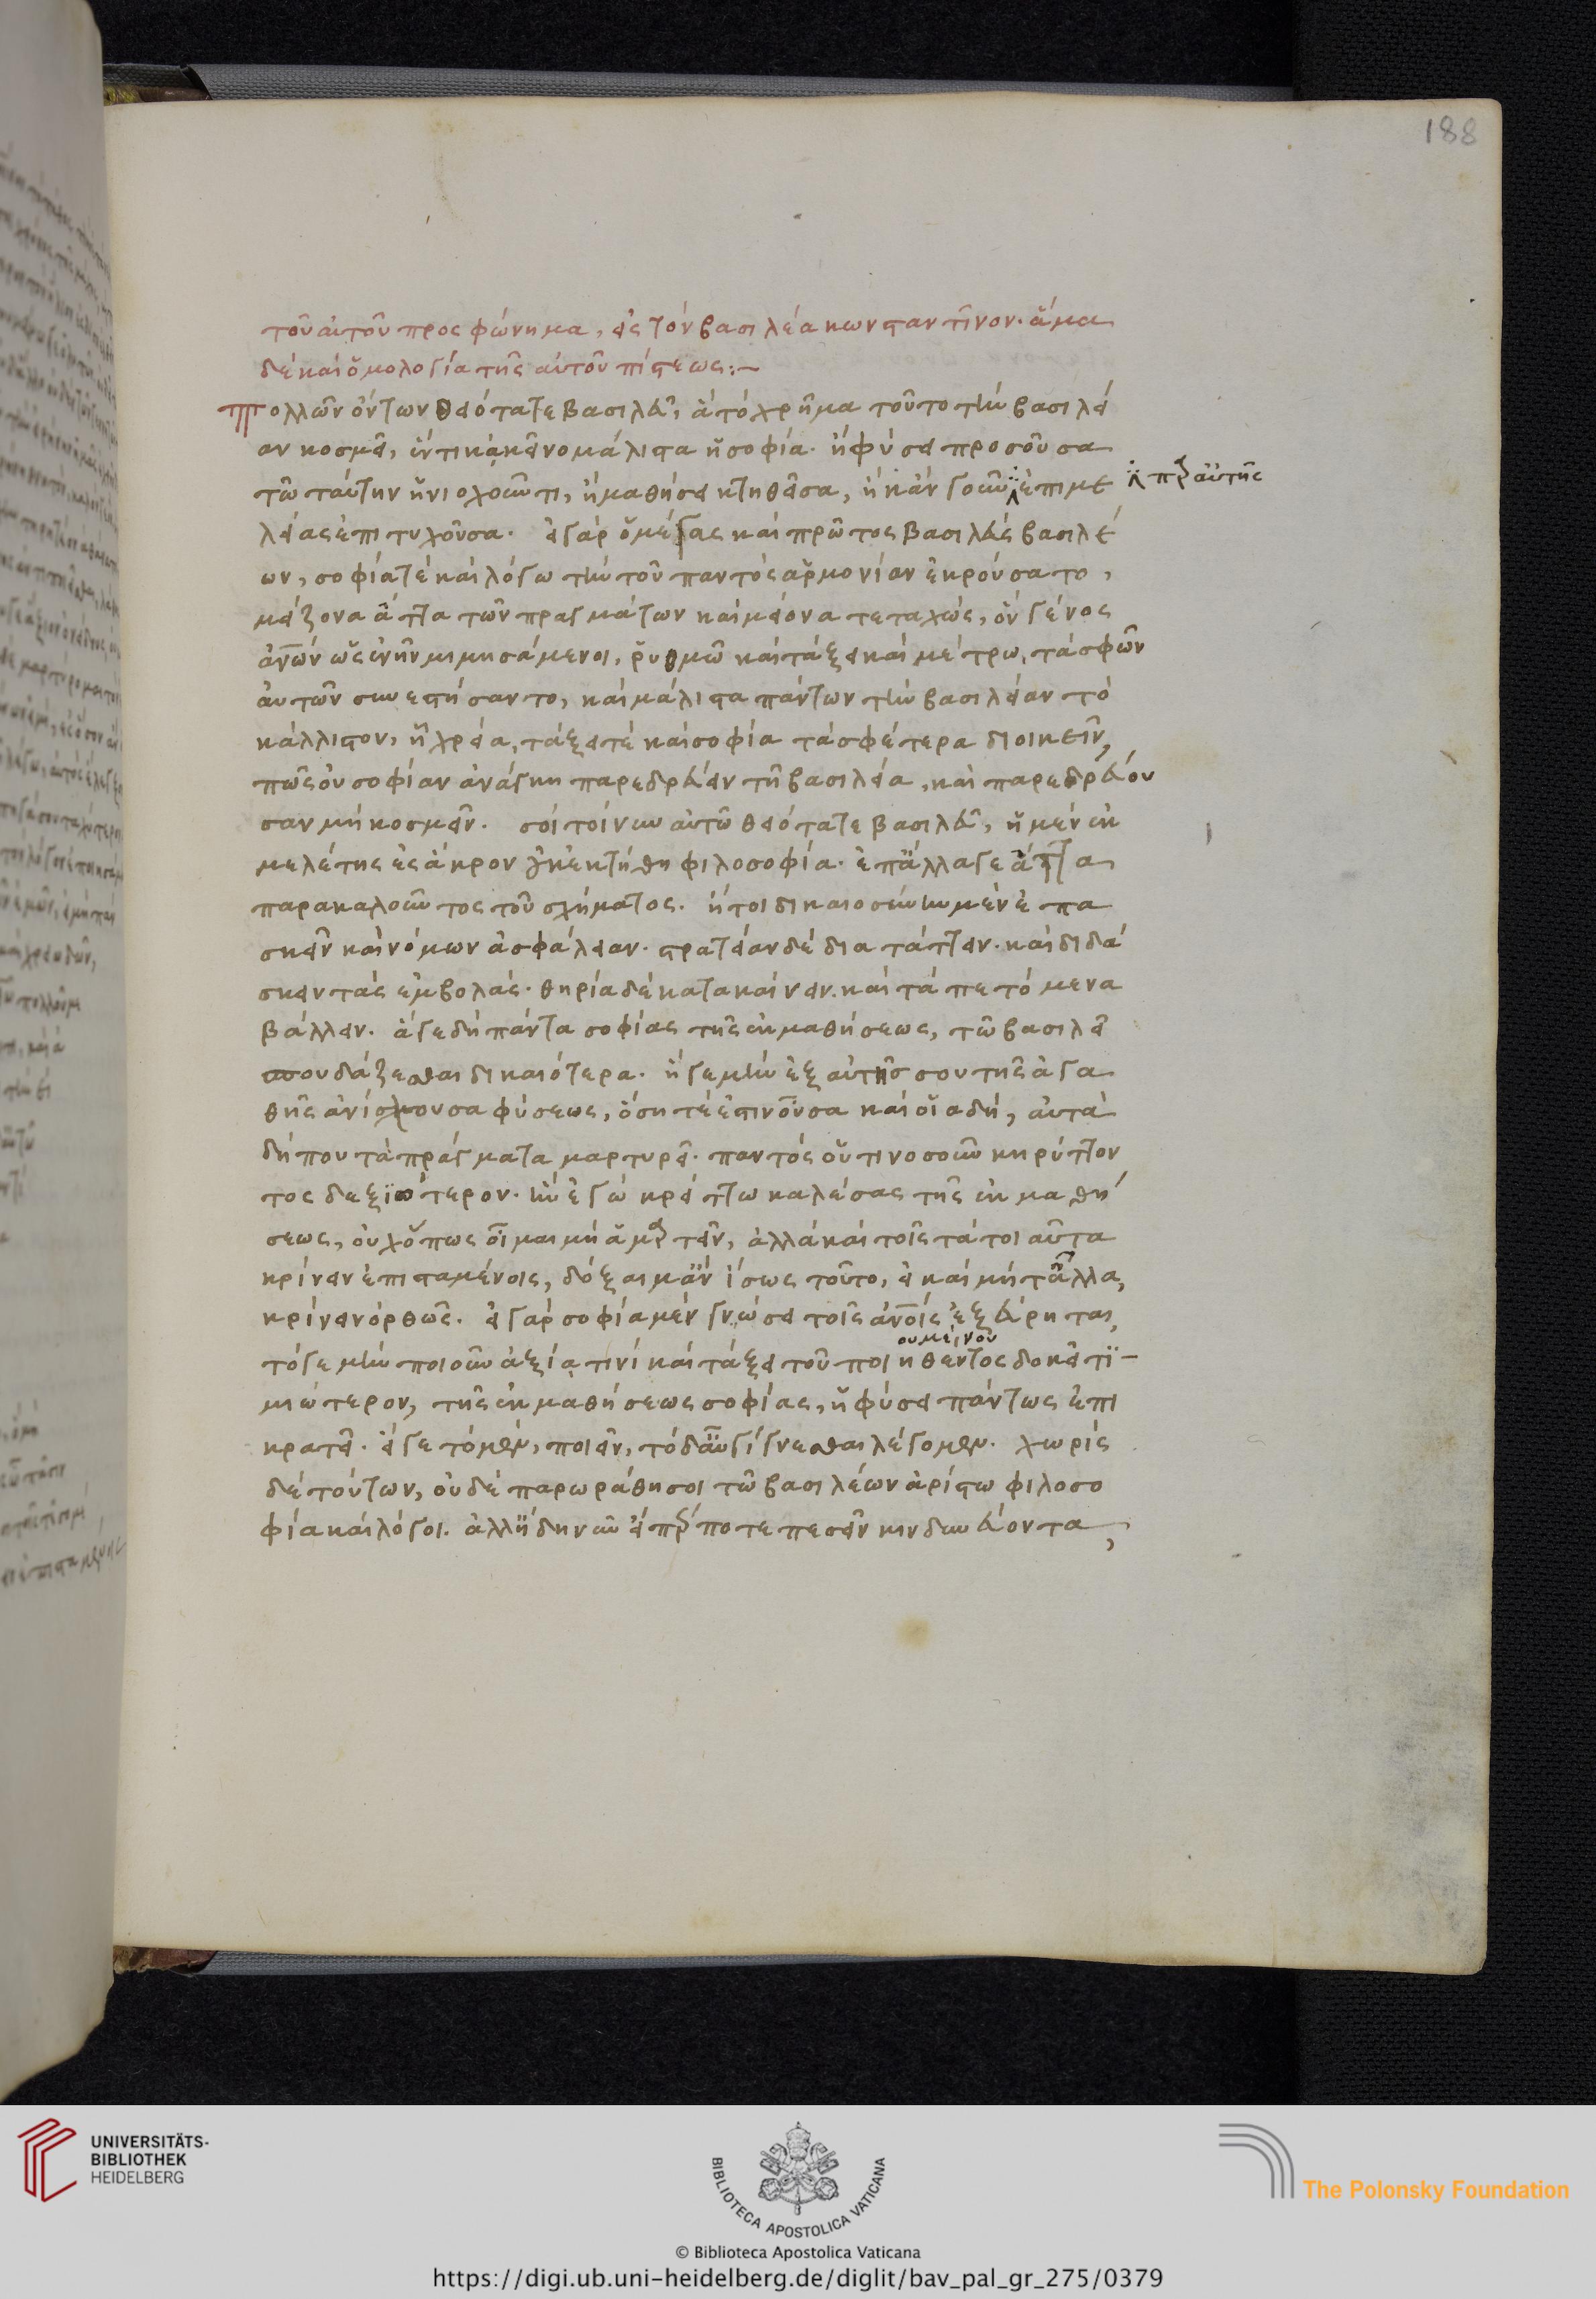 188
τοῦ αὐτοῦ προσφώνημα, εἰς τὸν βασιλέα κωνσταντῖνον· ἅμα
δὲ καὶ ὁμολογία τῆς αὐτοῦ πίστεως:~
Πολλῶν ὄντων θειότατε βασιλεῦ, ἃ τὸ χρῆμα τοῦτο τὴν βασιλεί
αν κοσμεῖ, ἕν τι κἀκεῖνο μάλιστα ἡ σοφία· ἢ φύσει προσοῦσα
τῶ ταύτην ἡνιοχοῦντι, ἢ μαθήσει κτηθεῖσα, ἢ κἂν γοῦν ἐπιμε
πρ αὐτῆς
λείας ἐπιτυχοῦσα· εἰ γὰρ ὁ μέγας καὶ πρῶτος βασιλεὺς βασιλέ
ων, σοφία τὲ καὶ λόγω τὴν τοῦ παντὸς ἁρμονίαν ἐκρούσατο,
μείζονα ἄττα τῶν πραγμάτων καὶ μείονα τεταχώς, ὃν γένος
ἀνων ὡς ἐνῆν μιμησάμενοι, ῥυθμῶ καὶ τάξει καὶ μέτρω, τὰ σφῶν
αὐτῶν συνεστήσαντο, καὶ μάλιστα πάντων τὴν βασιλείαν τὸ
κάλλιστον, ἧ χρεία, τάξει τὲ καὶ σοφία τὰ σφέτερα διοικεῖν,
πῶς οὐ σοφίαν ἀνάγκη παρεδρεύειν τῆ βασιλεία, καὶ παρεδρεύου
σαν μὴ κοσμεῖν. σοὶ τοίνυν αὐτῶ θειότατε βασιλεῦ, ἡ μὲν ἐκ
μελέτης ἐς ἄκρον ἐκτήθη φιλοσοφία· ἐπἄλλα γε ἄττα
παρακαλοῦντος τοῦ σχήματος. ἤτοι δικαιοσύνην μὲν ἐπα
σκεῖν καὶ νόμων ἀσφάλειαν· στρατείαν δὲ διατάττειν· καὶ διδά
σκειν τὰς ἐμβολάς· θηρία δὲ κατακαίνειν. καὶ τὰ πετόμενα
βάλλειν. ἅ γε δὴ πάντα σοφίας τῆς ἐκ μαθήσεως, τῶ βασιλεῖ
σπουδάζεσθαι δικαιότερα. ἥ γε μὴν ἐξ αὐτῆς σου τῆς ἀγα
θῆς ἀνίσχουσα φύσεως, ὅση τέ ἐστιν οὖσα καὶ οἵα δή, αὐτὰ
δήπου τὰ πράγματα μαρτυρεῖ· παντὸς οὑτινοσοῦν κηρύττον
τος δεξιώτερον· ἣν ἐγὼ κρείττω καλέσας τῆς ἐκ μαθή
σεως, οὐχ ὅπως οἶμαι μὴ ἁμαρτεῖν, ἀλλὰ καὶ τοῖς τά τοιαῦτα
κρίνειν ἐπισταμένοις, δόξαιμ ἂν ἴσως τοῦτο, εἰ καὶ μὴ τἆλλα,
κρίνειν ὀρθῶς. εἰ γὰρ σοφία μὲν γνώσει τοῖς ἀνοις ἐξεύρηται,
ουμείνου
τό γε μὴν ποιοῦν ἀξία τινὶ καὶ τάξει τοῦ ποιηθέντος δοκεῖ τι
μιώτερον, τῆς ἐκ μαθήσεως σοφίας, ἡ φύσει πάντως ἐπι
κρατεῖ. εἴ γε τὸ μὲν, ποιεῖν, τὸ δ αὖ γίγνεσθαι λέγομεν. χωρὶς
δὲ τούτων, οὐδὲ παρωράθησοι τῶ βασιλέων ἀρίστω φιλοσο
φία καὶ λόγοι. ἀλλ ἤδη νῦν εἴπέρ ποτε πεσεῖν κινδυνεύοντα,
UNIVERSITÄTS-
BIBLIOTHEK
HEIDELBERG
BIBLIOTECA APOSTOLICA VATICANA
The Polonsky Foundation
© Biblioteca Apostolica Vaticana
https://digi.ub.uni-heidelberg.de/diglit/bav_pal_gr_275/0379